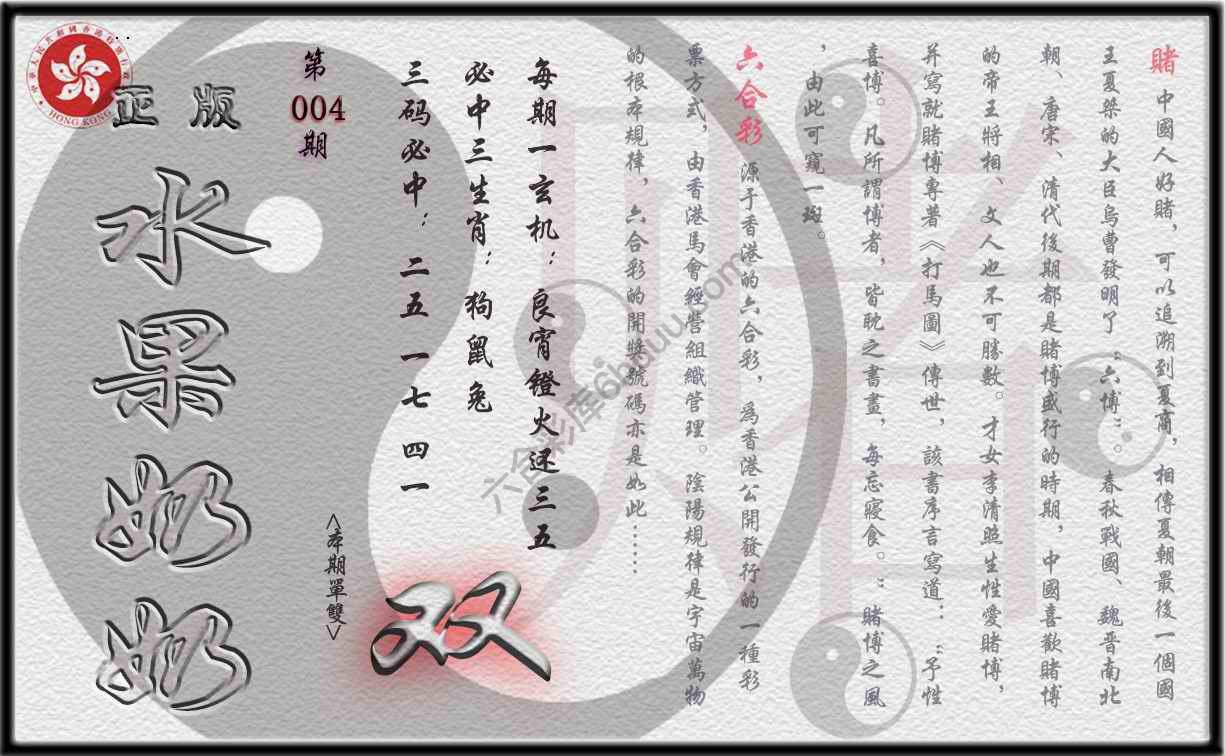 賭 中國人好賭，可以追溯到夏商，相傳夏朝最後一個國
王夏桀的大臣烏曹發明了“六博”。春秋戰國、魏晋南北
朝、唐宋、清代後期都是賭博盛行的時期，中國喜歡賭博
的帝王將相、文人也不可勝數。才女李清照生性愛賭博，
并寫就賭博專著《打馬圖》傳世，該書序言寫道：“予性
喜博。凡所謂博者，皆耽之書畫，每忘寢食。”賭博之風
，由此可窺一斑。
六合彩 源于香港的六合彩，為香港公開發行的一種彩
票方式，由香港馬會經營組織管理。陰陽規律是宇宙萬物
的根本規律，六合彩的開獎號碼亦是如此……
每期一玄机：良宵鐙火还三五
必中三生肖：狗鼠兔
三码必中：二五 一七 四一
第
004
期
<本期單雙>
双
正版
水果奶奶
中華人民共和國香港特別行政區
HONG KONG
六合彩库6huuu.com